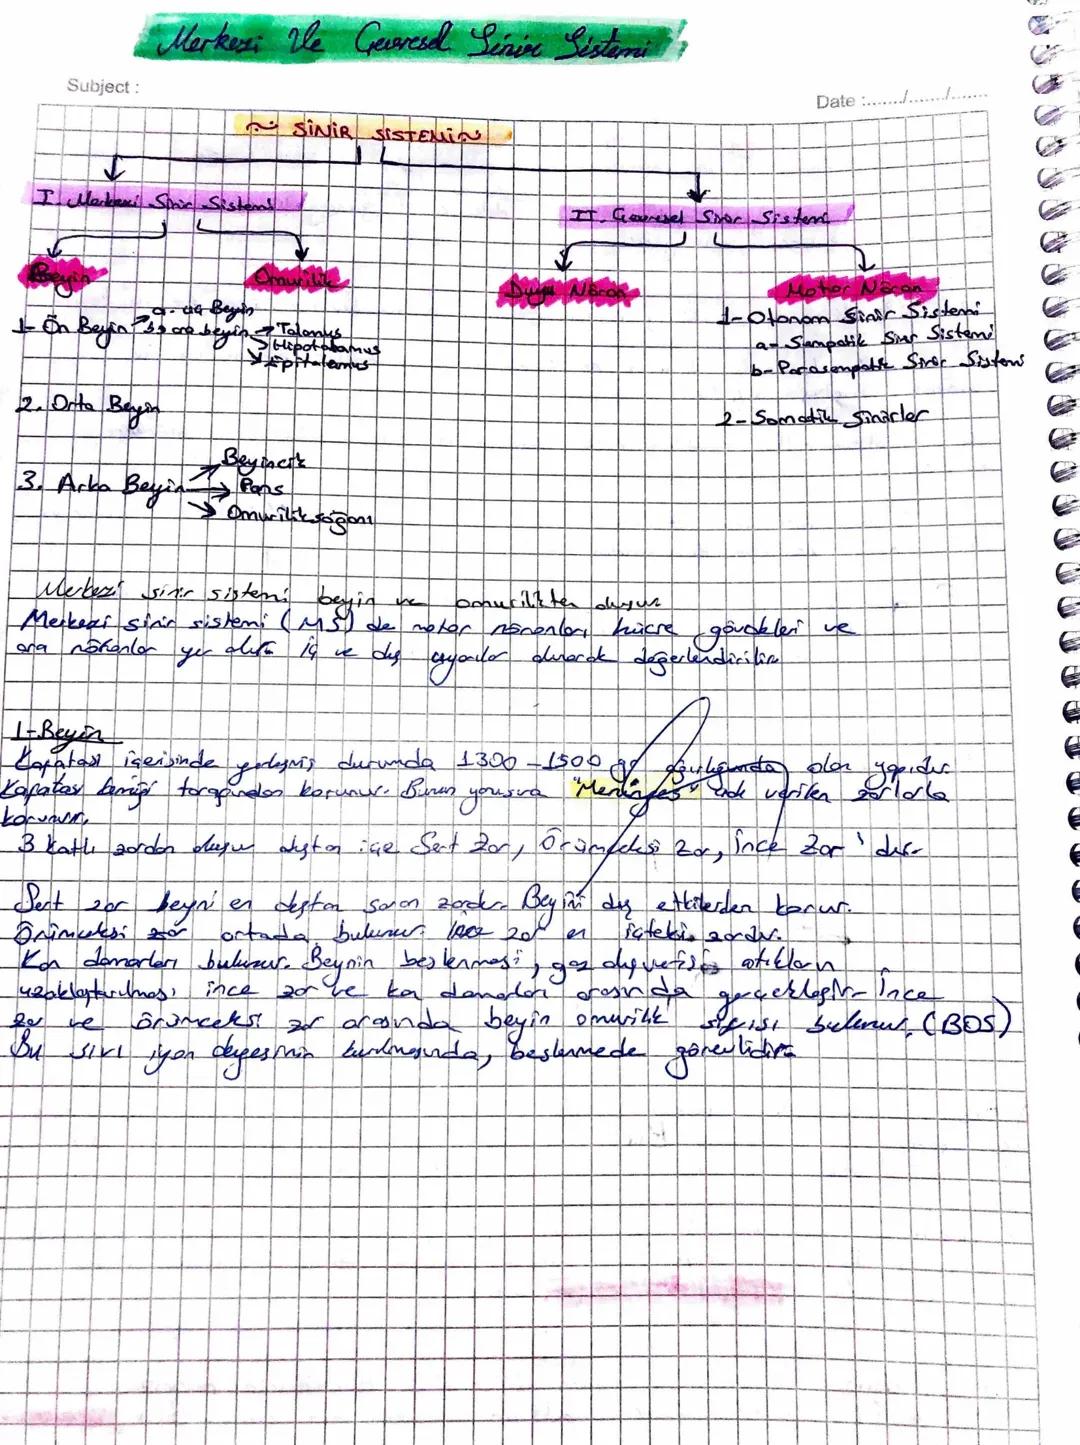 Merkezi Ve Çevresel Sinir Sistemi
Subject :
Date :......../......../........
~ SİNİR SİSTEMİ ~
I. Merkezi Sinir Sistemi
II. Çevresel Sinir Sistemi
Beyin
Omurilik
Duyu Nöron
Motor Nöron
1- Ön Beyin
a- uç Beyin
b- ara beyin
Talamus
Hipotalamus
Epitalamus
1- Otonom Sinir Sistemi
a- Sempatik Sinir Sistemi
b- Parasempatik Sinir Sistemi
2. Orta Beyin
2- Somatik Sinirler
3. Arka Beyin
Beyincik
Pons
Omurilik soğanı
Merkezi sinir sistemi beyin ve omurilikten oluşur
Merkezi sinir sistemi (MS) de motor nöronları hücre gövdeleri ve
ara nöronlar yer alır. İç ve dış uyarılar alınarak değerlendirilir
1-Beyin
Kafatası içerisinde yerleşmiş durumda 1300-1500 gr ağırlığında olan yapıdır.
Kafatası kemiği tarafından korunur. Bunun yanısıra "Meninges" adı verilen zarlarla
korunur.
3 katlı zardan oluşur dıştan içe Sert Zar, Örümceksi Zar, İnce Zar'dır.
Sert zar beyni en dıştan saran zardır. Beyini dış etkilerden korur.
Örümceksi zar ortada bulunur. İnce zar en içteki zardır.
Kan damarları bulunur. Beynin beslenmesi, gaz alışverişi atıkların
uzaklaştırılması ince zar ve kan damarları arasında gerçekleşir. İnce
zar ve örümceksi zar arasında beyin omurilik sıvısı bulunur. (BOS)
Bu sıvı iyon dengesinin kurulmasında, beslenmede görevlidir.